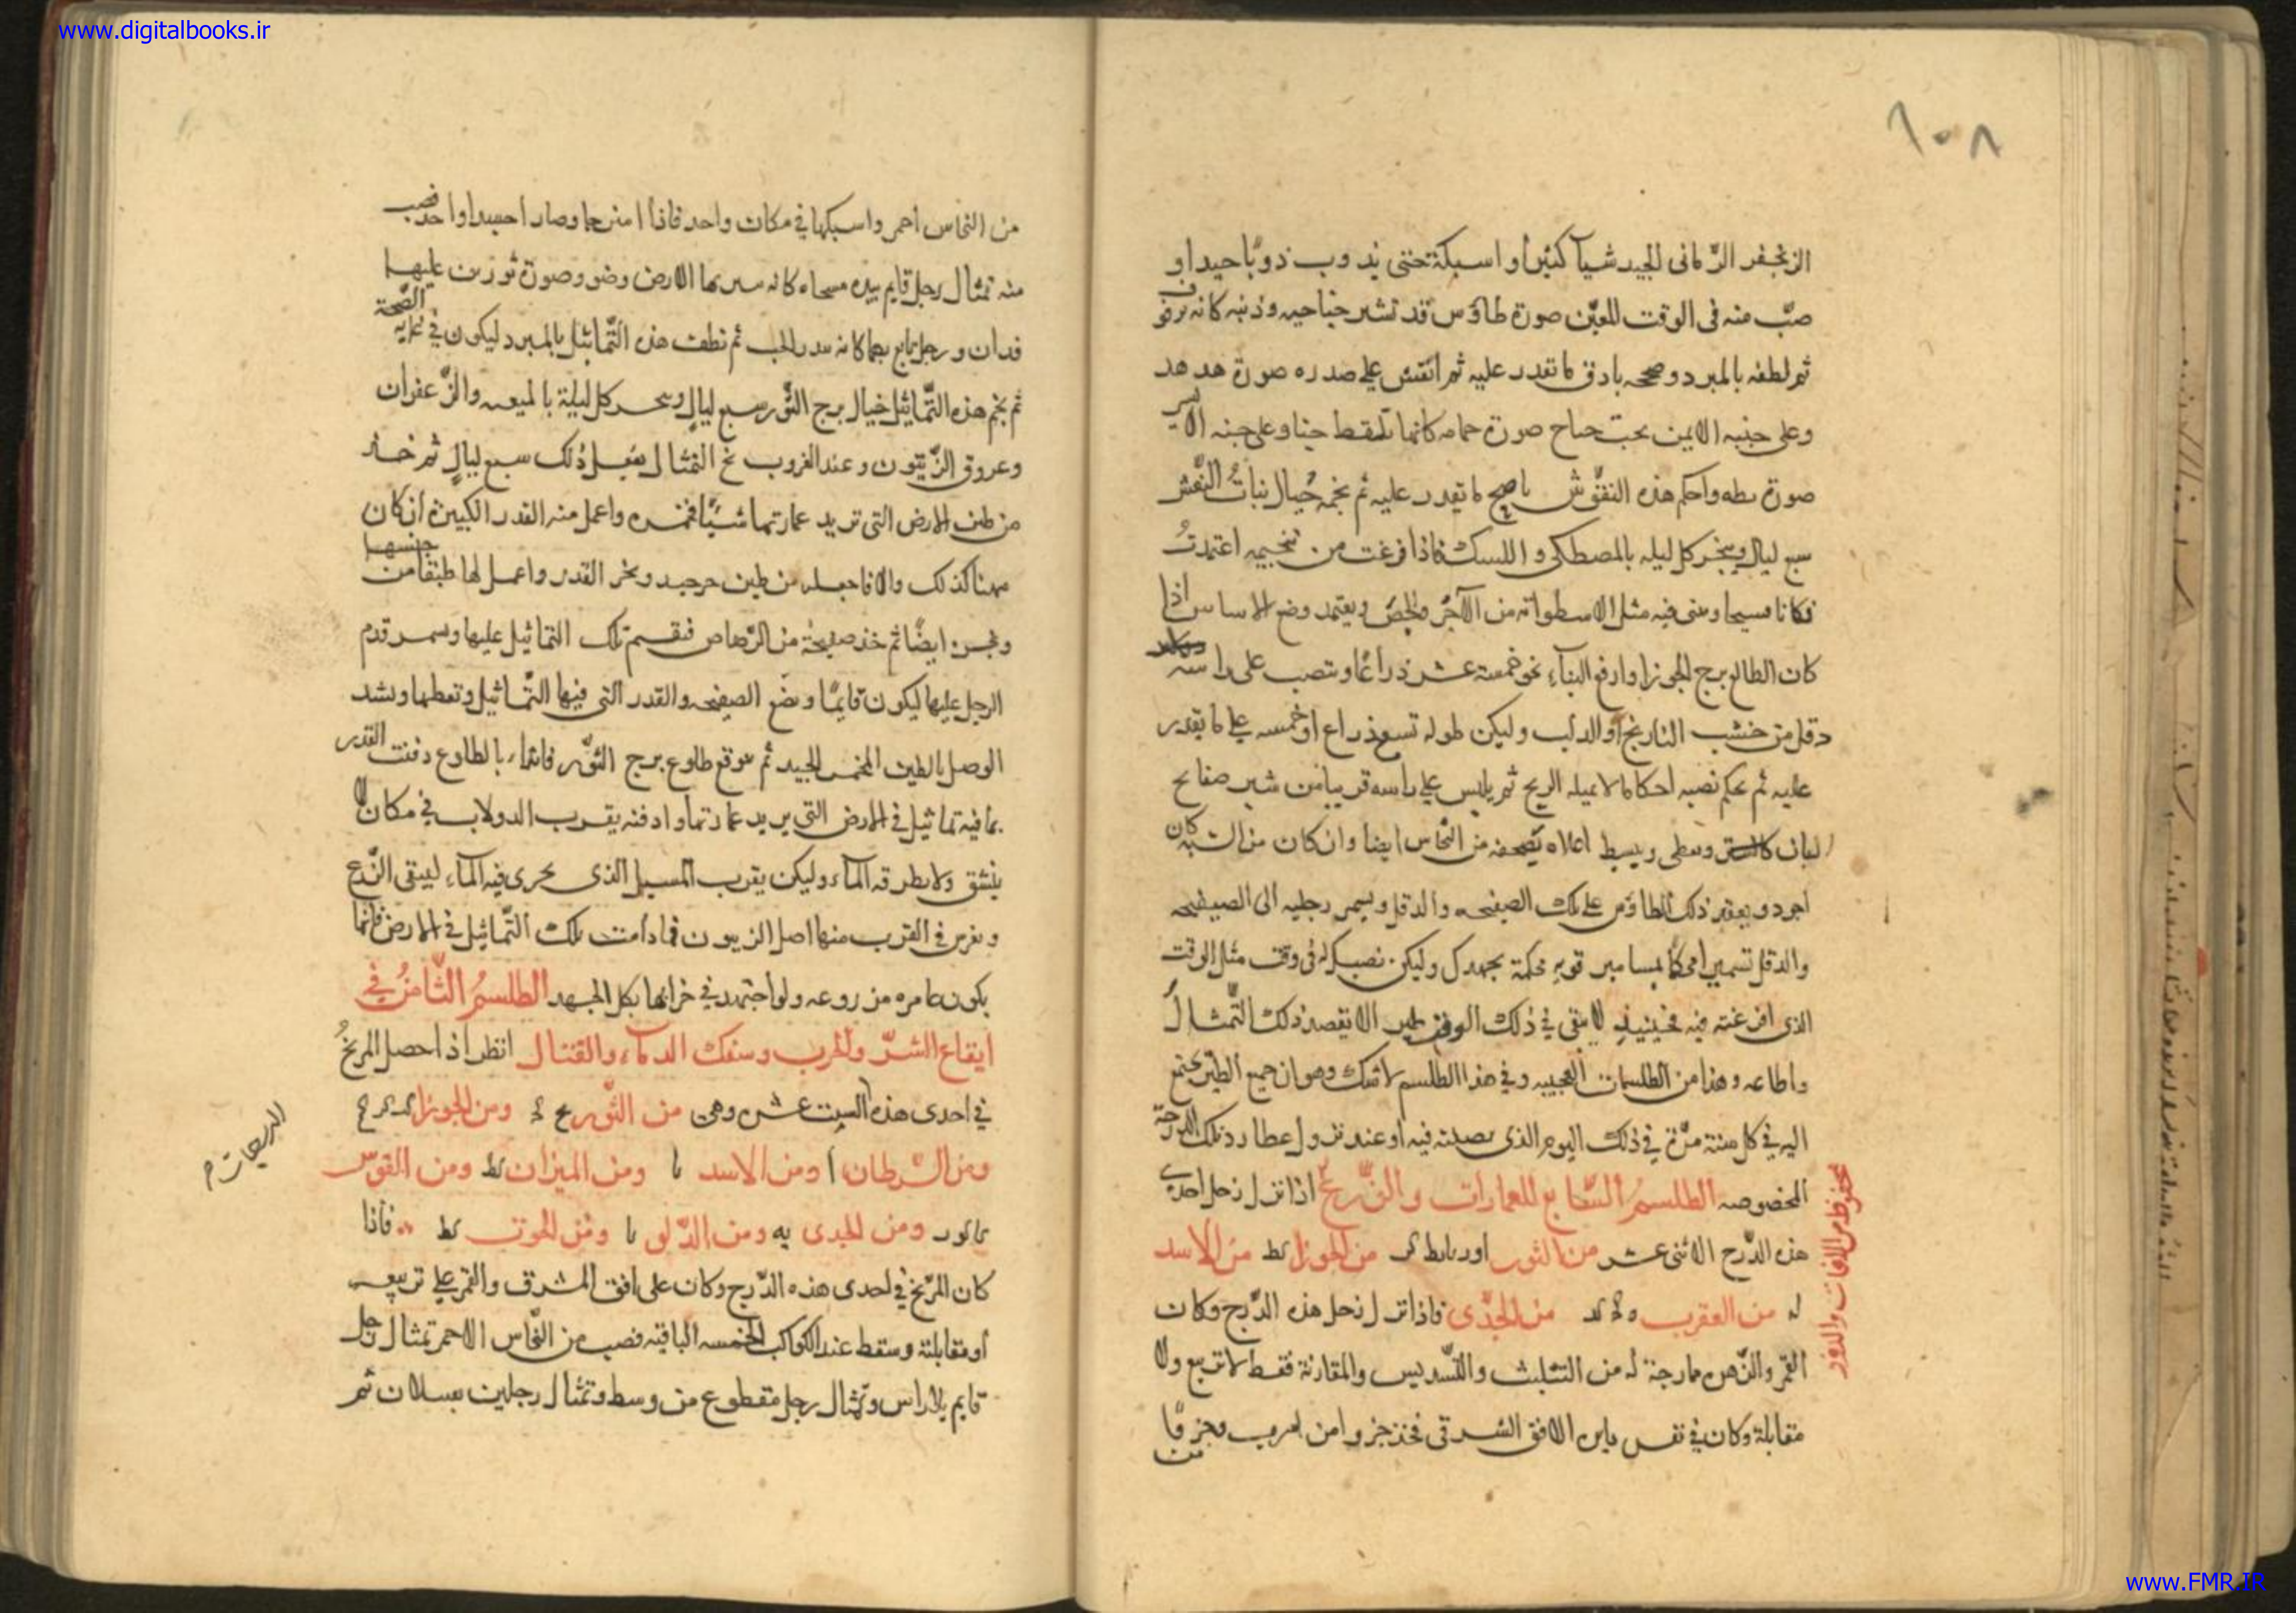 www.digitalbooks.ir
١٠٨
الزنجفر الرمانى الجيد شيآ كثيرا واسبكة حتى يذوب ذوبا جيدا و
صب منه فى الوقت المعين صورة طاؤس قد نشر جناحيه وذنبه كانه يرفرف
ثم لطفه بالمبرد وصححه بادق ما تقدر عليه ثم انقش على صدره صورة هدهد
وعلى جنبه الايمن تحت جناح صورة حمامه كانها تلتقط حبا وعلى جنبه الايسر
صورة بطه واحكم هذه النقوش باصح ما تقدر عليه ثم نجمه حيال نبات النعش
سبع ليال ويبخر كل ليله بالمصطكى و فاذا فرغت من تنجيمه اعتمدت
مكانا فسيحا وبنى فيه مثل الاسطوانه من الآجر والجص ويعتمد وضع الاساس اذا
كان الطالع برج الجوزا وارفع البناء نحو خمسة عشر ذراعا وينصب على راسه
دقل من خشب النارنج او الدلب وليكن طوله تسع ذراع او خمسه على ما يقدر
عليه ثم يحكم نصبه احكاما لا يميله الريح ثم يلبس على راسه قريبا من شبر صفايح
ويبسط اعلاه بصفيحه من النحاس ايضا وان كان من الشبه كان
اجود ويقيم ذلك الطاؤس على تلك الصفيحه والدقل ويسمر رجليه الى الصفيحه
والدقل تسميرا محكما بمسامير قويه محكمة بجهدك وليكن نصبك له فى وقت مثل الوقت
الذى افرغته فيه فحينيذ لا يبقى في ذلك طير الا يقصد ذلك التمثال
واطاعه وهذا من الطلسمات العجيبه وفي هذا الطلسم لا شك وهو ان جميع الطير يجتمع
اليه في كل سنة مرة في ذلك اليوم الذى نصبته فيه او عند نزول عطارد تلك الدرجة
المخصوصه الطلسم السابع للعمارات والزرع اذا نزل زحل احدى
هذه الدرج الاثنى عشر من الثور من الجوزا كط من الاسد
له من العقرب من الجدى فاذا نزل زحل هذه الدرج وكان
القمر والزهره ممازجة له من التثليث والتسديس والمقارنة فقط لا تربيع ولا
مقابلة وكان في نفس الافق الشرقى فخذ جزوا من وجزوا
من
محفوظ من الافات والدور
من النحاس احمر واسبكها في مكان واحد فاذا امتزجا وصار جسدا واحدا فصب
منه تمثال رجل قايم بيده مسحاه كانه الارض وصورة ثورين عليهما
فدان ورجل تابع بهما كانه الحب ثم نظف هذه التماثيل بالمبرد ليكون في غاية الصحة
ثم نجم هذه التماثيل حيال برج الثور سبع ليال وبخر كل ليلة بالميعه والزعفران
وعروق الزيتون وعند الغروب نح التمثال يفعل ذلك سبع ليال ثم خذ
من طين الارض التى تريد عمارتها شيا فخمره واعمل منه القدر الكبيرة ان كان
كذلك والا فاجعله من طين حر جيد وبخر القدر واعمل لها طبقا من جنسها
ايضا ثم خذ صفيحة من الرصاص فتقسم تلك التماثيل عليها ويسمر قدم
الرجل عليها ليكون قايما ويضع الصفيحه والقدر التى فيها التماثيل وتغطها وتشد
الوصل بالطين المخمر الجيد ثم توقع طلوع برج الثور فابتداء بالطلوع دفنت القدر
بما فيه تماثيل في الارض التى يريد عمارتها وادفنه بقرب الدولاب في مكان لا
ينشق ولا يطرقه المآء وليكن بقرب المسيل الذى يجرى فيه المآء ليبقى الزرع
ويغرس في القرب منها اصل الزيتون فما دامت تلك التماثيل في الارض فانها
يكون عامره مزروعه ولو اجتهد في خرابها بكل الجهد الطلسم الثامن في
ايقاع الشر والحرب وسفك الدماء والقتال انظر اذا حصل المريخ
في احدى هذه الست عشر وهى من الثور ومن الجوزا
ومن السرطان ا ومن الاسد ومن الميزان كط ومن القوس
ومن الجدى يه ومن الدلو ومن الحوت كط فاذا
كان المريخ في احدى هذه الدرج وكان على افق المشرق والقمر على تربيعه
او مقابلة وسقط عند الكواكب الخمسه الباقيه فصب من النحاس الاحمر تمثال رجل
قايم بلا راس وتمثال رجل مقطوع من وسط وتمثال رجلين ثم
www.FMR.IR